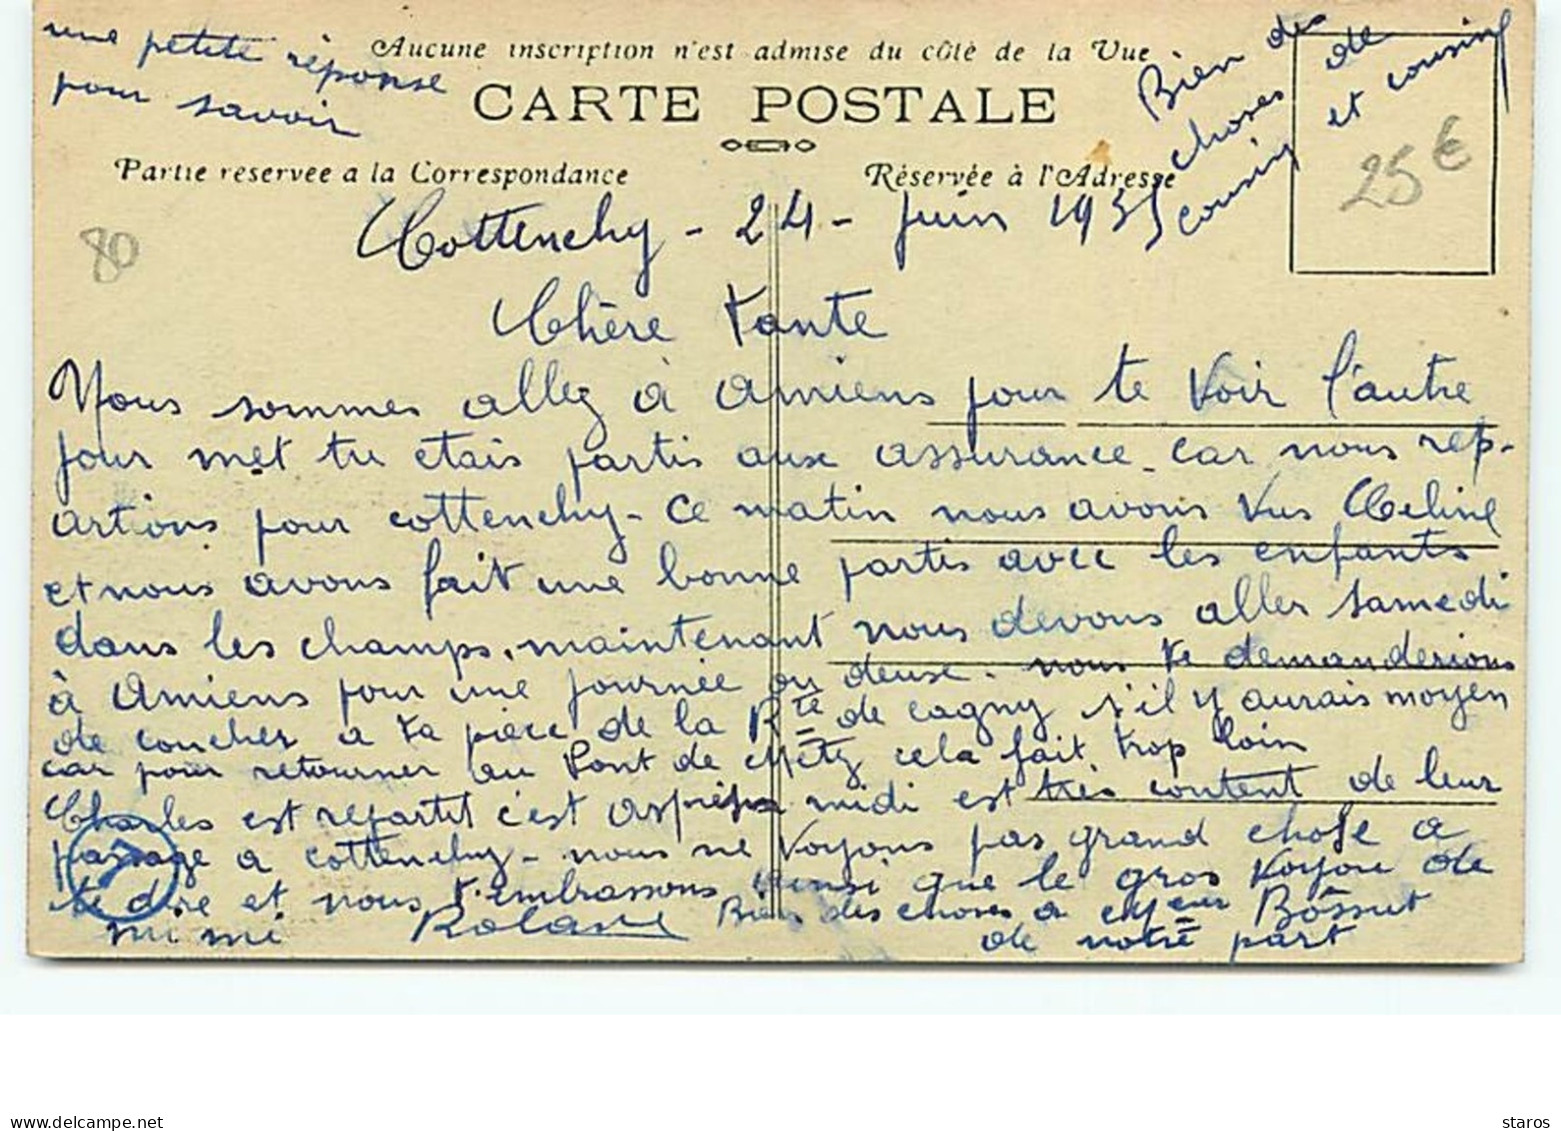 une petite réponse
pour savoir
Aucune inscription n'est admise du côté de la Vue
CARTE POSTALE
Partie reservee a la Correspondance
Réservée à l'Adresse
Bien des
choses de
cousin et cousine
25€
80
Cottenchy - 24 - juin 1955
Chère tante
Nous sommes allez à Amiens pour te voir l'autre
jour met tu etais partis aux assurance - car nous rep-
artions pour cottenchy - ce matin nous avons vus Celine
et nous avons fait une bonne partis avec les enfants
dans les champs, maintenant nous devons aller samedi
à Amiens pour une journée ou deux. nous te demanderions
de coucher a ta pièce de la Rte de cagny s'il y aurais moyen
car pour retourner au Pont de Metz cela fait trop loin
Charles est repartit c'est après midi est très content de leur
passage a cottenchy - nous ne voyons pas grand chose a
te dire et nous t'embrassons ainsi que le gros voyou de
mimi Rolane Bien des choses a Mr Bossut
de notre part
staros